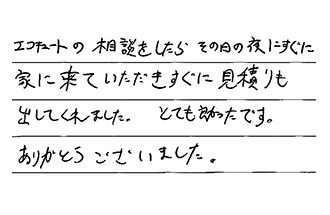 エコキュートの 相談をしたら その日の夜にすぐに
家に来ていただきすぐに見積りも
出してくれました。 とても助かったです。
ありがとうございました。